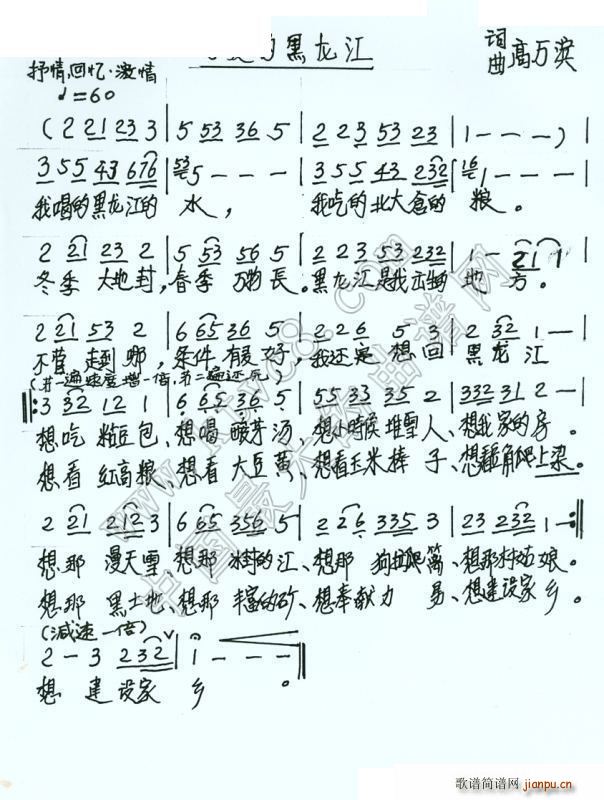 的黑龙江
词
曲 高万滨
抒情、回忆·激情
♩=60
( 2 21 23 3 | 5 53 36 5 | 2 23 53 23 | 1 - - - )
3 55 43 676 | 5 - - - | 3 55 43 232 | 1 - - -
我喝的黑龙江的 水， 我吃的北大仓的 粮。
2 21 23 2 | 5 53 56 5 | 2 23 53 232 | 1 - 21 1
冬季 大地封，春季 万物長。黑龙江是我 的 地 方。
2 21 53 2 | 6 65 36 5 | 2 26 5 3 | 2 32 1 -
不管 走到 哪，条件 有多 好，我还是 想回 黑龙 江
(第一遍速度增一倍，第二遍还元)
3 32 12 1 | 6 65 36 5 | 55 33 35 2 | 332 31 2 -
想吃 粘豆包、想喝 酸菜汤、想小时候堆雪人、想我家的房。
想看 红高粮、想看 大豆黄、想看玉米棒 子、想 角爬上梁。
2 21 212 3 | 6 65 356 5 | 2 26 335 3 | 23 232 1 -
想那 漫天雪、想那 冰封的江、想那 狗拉爬篱、想那村姑娘。
想那 黑土地、想那 丰富的矿、想奉献力 、想建设家 乡。
(减速一倍)
2 - 3 232 | 1 - - -
想 建 设家 乡 。
www.jpwc8.com
中国最大的曲谱网
歌谱简谱网
jianpu.cn